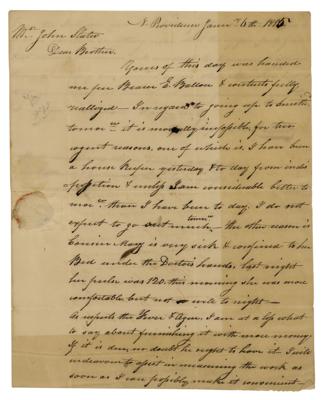 N. Providence Janr 6th. 18
Mr. John Slater
Dear Brother.
Yours of this day was handed
me per Bearer E. Ballou & contents fully
realized – In regard to going up to
tomor it is morally impossible for two
urgent reasons, one of which is I have been
a house keeper yesterday & to day from indis
position & unless I am considerable better to
mor. than I have been to day, I do not
expect to go out much – the other reason is
Cousin Mary is very sick & confined to her
Bed under the Doctors hands, last night
her pulse was 120. this morning she was more
comfortable but not so to night –
As respects the I am at a loss what
to say about furnishing it with more money.
If it is due, no doubt he ought to have it. I will
endeavour to assist in the work as
soon as I can possibly make it convenient –